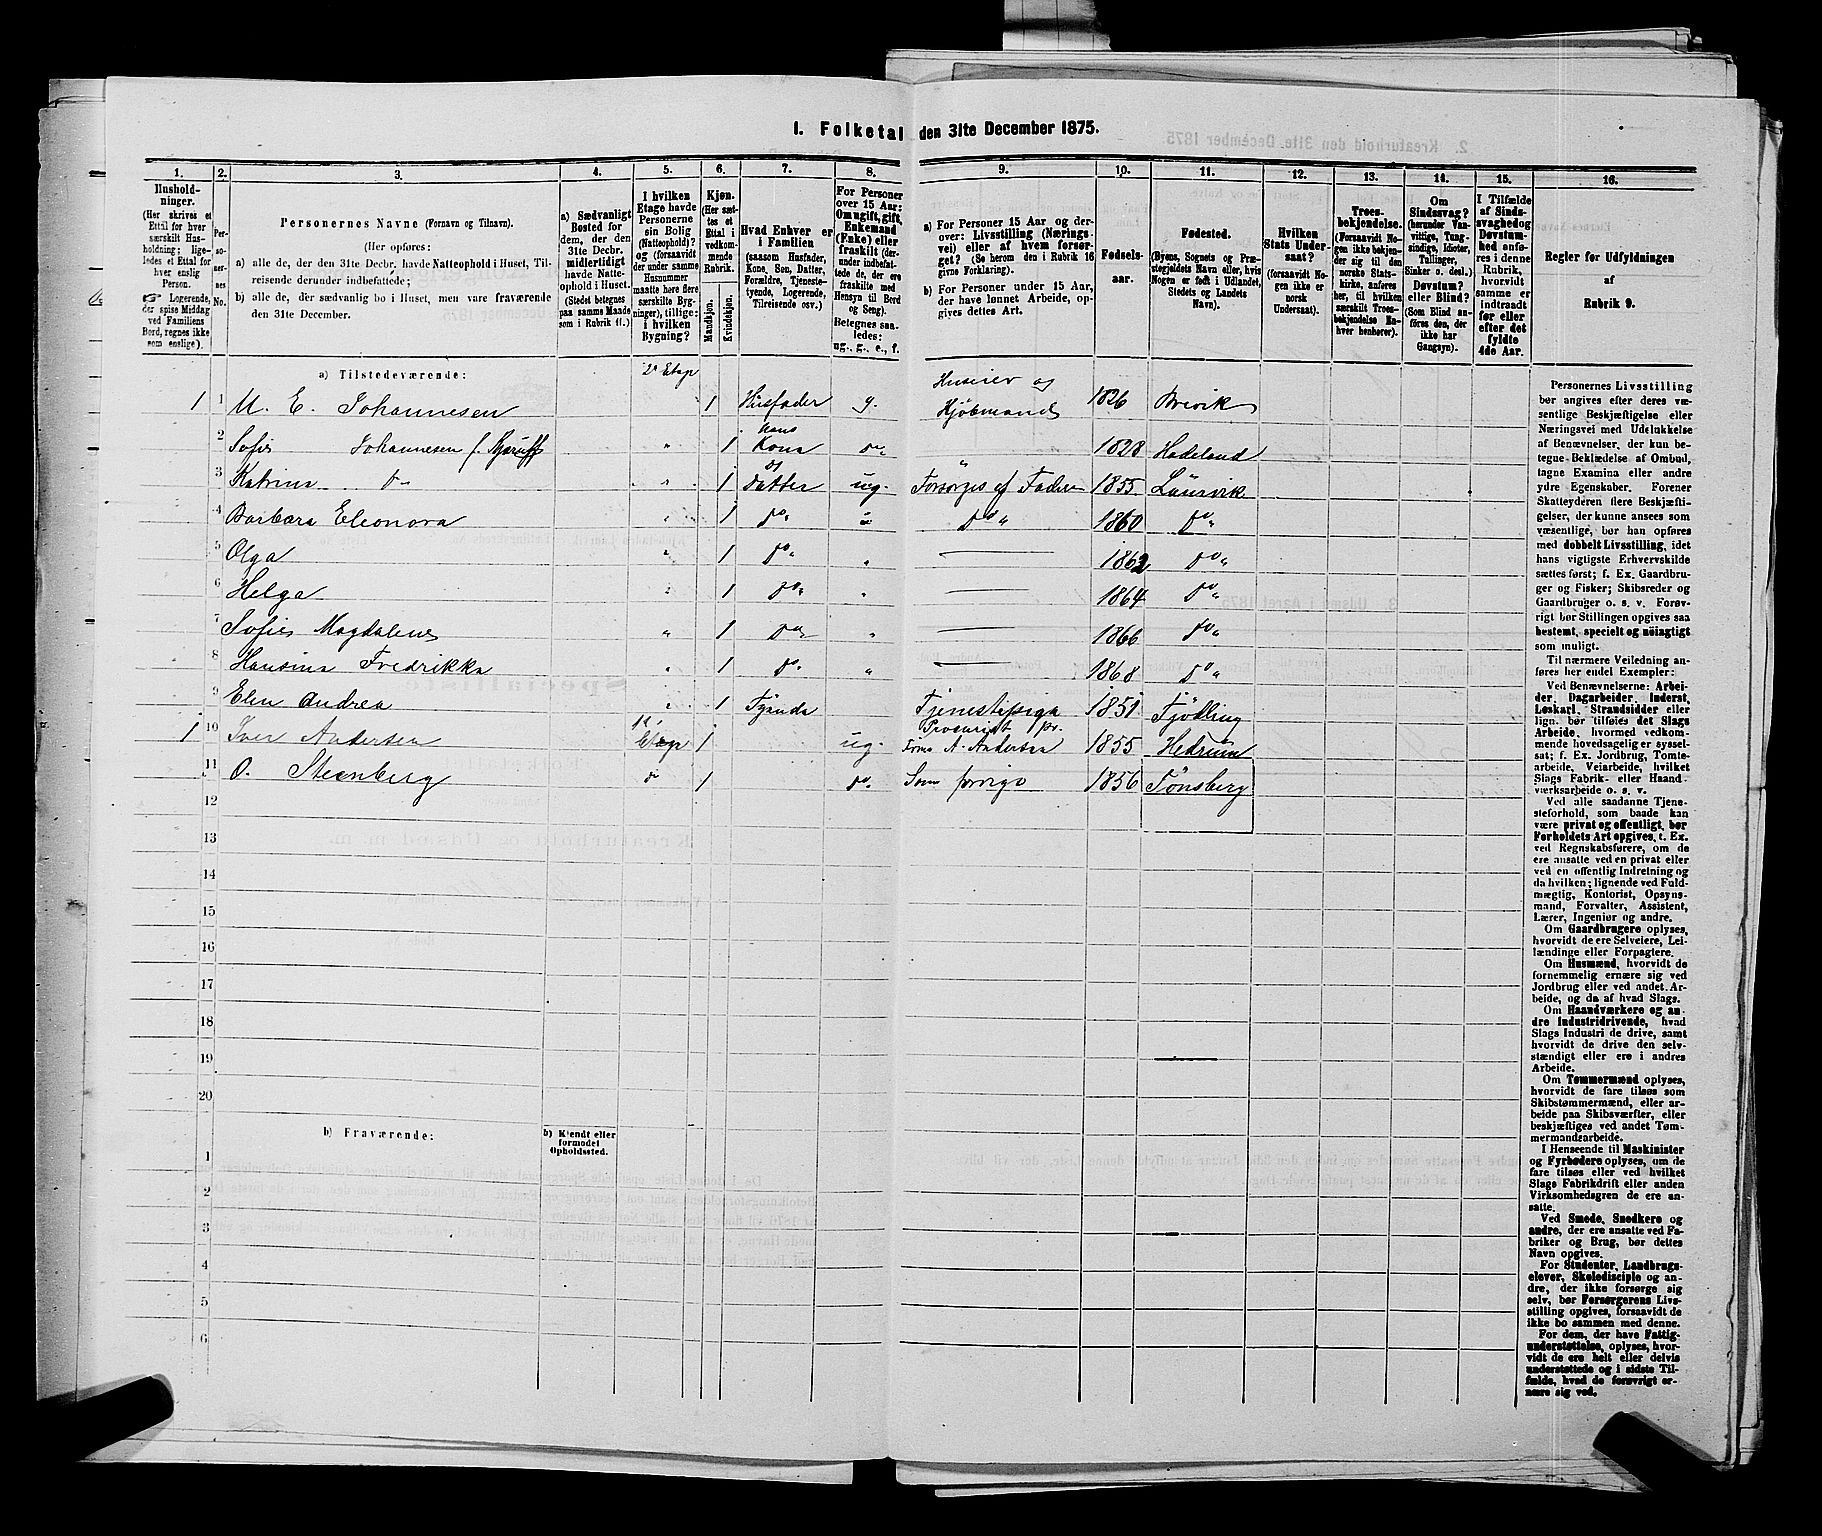 1. Folketal den 31te December 1875.
1. 2. 3. 4. 5. 6. 7. 8. 9. 10. 11. 12. 13. 14. 15. 16.
Husholdninger. (Her skrives et Ettal for hver særskilt Husholdning; ligeledes et Ettal for hver enslig Person. Logerende, der spise Middag ved Familiens Bord, regnes ikke som enslige).
Personernes No.
Personernes Navne (Fornavn og Tilnavn).
(Her opføres:
a) alle de, der den 31te Decbr. havde Natteophold i Huset, Tilreisende derunder indbefattede;
b) alle de, der sædvanlig bo i Huset, men vare fraværende den 31te December.
a) Sædvanligt Bosted for dem, der den 31te Decbr. midlertidigt havde Natteophold i Huset. (Stedet betegnes paa samme Maade som i Rubrik 11.)
I hvilken Etage havde Personerne sin Bolig (Natteophold)? og (forsaavidt der under samme Husnummer maatte høre flere særskilte Bygninger), tillige: i hvilken Bygning?
Kjøn. (Her sættes et Ettal i vedkommende Rubrik.
Mandkjøn. Kvindekjøn.
Hvad Enhver er i Familien (saasom Husfader, Kone, Søn, Datter, Forældre, Tjenestetyende, Logerende, Tilreisende osv.)
For Personer over 15 Aar: Om ugift, gift, Enkemand (Enke) eller fraskilt (derunder indbefattede de, der ere fraskilte med Hensyn til Bord og Seng). Betegnes saaledes: ug., g., e., f.
a) For Personer 15 Aar og derover: Livsstilling (Næringsvei) eller af hvem forsørget? (Se herom den i Rubrik 16 givne Forklaring).
b) For Personer under 15 Aar, der have lønnet Arbeide, opgives dettes Art.
Fødselsaar.
Fødested. (Byens, Sognets og Præstegjeldets Navn eller, hvis Nogen er født i Udlandet, Stedets og Landets Navn).
Hvilken Stats Undersaat? (forsaavidt Nogen ikke er norsk Undersaat).
Troesbekjendelse. (Forsaavidt Nogen ikke bekjender sig til den norske Statskirke, anføres her, til hvilken særskilt Troesbekjendelse Enhver henhører).
Om Sindssvag? (herunder Vanvittige, Tungsindige, Idioter, Tullinger, Sinker o. desl.) Døvstum? eller Blind? (Som Blind anføres den, der ikke har Gangsyn).
I Tilfælde af Sindssvaghed og Døvstumhed anføres i denne Rubrik, hvorvidt samme er indtraadt før eller efter det fyldte 4de Aar.
Regler for Udfyldningen af Rubrik 9.
a) Tilstedeværende: 2n Etage
1 1 M. E. Johannesen 1 Husfader g. Huseier og Kjøbmand 1826 Brevik
2 Sofie Johannesen f. " 1 hans Kone do 1828 Hadeland
3 Katrina do " 1 Datter ug. Forsørges af Fader 1855 Laurvik
4 Barbara Eleonora " 1 do " do " 1860 do "
5 Olga " 1 do " 1862 do "
6 Helga " 1 do " 1864 do "
7 Sofie Magdalene " 1 do " 1866 do "
8 Hansine Fredrikka " 1 do " 1868 do "
9 Elen Andrea " 1 Tjenestepige 1851 Fjødling
1 10 Iver Andersen Etage 1 ug. A. Andersen 1855 Hedrum
11 O. Steenberg do 1 do. Som forrige 1856 Tønsberg
12
13
14
15
16
17
18
19
20
b) Fraværende: b) Kjendt eller formodet Opholdssted.
1
2
3
4
5
6
Personernes Livsstilling
bør angives efter deres væ-
sentlige Beskjæftigelse eller
Næringsvei med Udelukkelse
af Benævnelser, der kun be-
tegne Beklædelse af Ombud,
tagne Examina eller andre
ydre Egenskaber. Forener
Skatteyderen flere Beskjæfti-
gelser, der kunne ansees som
væsentlige, bør han opføres
med dobbelt Livsstilling, idet
hans vigtigste Erhvervskilde
sættes først; f. Ex. Gaardbru-
ger og Fisker; Skibsreder og
Gaardbruger o. s. v. Forøv-
rigt bør Stillingen opgives saa
bestemt, specielt og nøiagtigt
som muligt.
Til nærmere Veiledning an-
føres her endel Exempler:
Ved Benævnelserne: Arbei-
der, Dagarbeider, Inderst,
Løskarl, Strandsidder eller
lign. bør tilføies det Slags
Arbeide, hvormed vedkom-
mende hovedsagelig er syssel-
sat; f. Ex. Jordbrug, Tomte-
arbeide, Veiarbeide, hvilket
Slags Fabrik- eller Haand-
værksarbeide o. s. v.
Ved alle saadanne Tjene-
steforhold, som baade kan
være privat og offentligt, bør
Forholdets Art opgives, t. Ex.
ved Regnskabsførere, om de
ere ansatte ved en privat eller
ved en offentlig Indretning og
da hvilken; lignende ved Fuld-
mægtig, Kontorist, Opsyns-
mand, Forvalter, Assistent,
Lærer, Ingeniør og andre.
Om Gaardbrugere oplyses,
hvorvidt de ere Selveiere, Lei-
lændinge eller Forpagtere.
Om Husmænd, hvorvidt de
fornemmelig ernære sig ved
Jordbrug eller ved andet Ar-
beide, og da af hvad Slags.
Om Haandværkere og an-
dre Industridrivende, hvad
Slags Industri de drive, samt
hvorvidt de drive den selv-
stændigt eller ere i andres
Arbeide.
Om Tømmermænd oplyses,
hvorvidt de fare tilsøs som
Skibstømmermænd, eller ar-
beide paa Skibsværfter, eller
beskjæftiges ved andet Tøm-
mermandsarbeide.
I Henseende til Maskinister
og Fyrbødere oplyses, om de
fare tilsøs eller ved hvilket
Slags Fabrikdrift eller anden
Virksomhedsgren de ere an-
satte.
Ved Smede, Snedkere og
andre, der ere ansatte ved Fa-
briker og Brug, bør dettes
Navn opgives.
For Studenter, Landbrugs-
elever, Skoledisciple og an-
dre, der ikke forsørge sig
selv, bør Forsørgerens Livs-
stilling opgives, forsaavidt de
ikke bo sammen med denne.
For dem, der have Fattig-
understøttelse, oplyses, hvor-
vidt de ere helt eller delvis
understøttede og i sidste Til-
fælde, hvad de forøvrigt er-
nære sig ved.